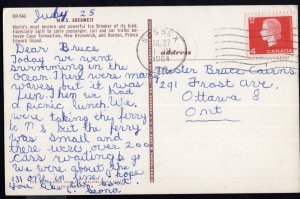 DR-543
July 25
M.V. ABEGWEIT
World's most modern and powerful Ice Breaker of its kind.
Especially built to carry passenger, rail and car traffic be-
tween Cape Tormentine, New Brunswick, and Borden, Prince
Edward Island.
Dear Bruce
Today we went
swimming in the
ocean. There were many
waves, but it was
fun. Then we had
a picnic lunch. We
were taking the ferry
to N B but the ferry
was small and
there were over 200
cars waiting to go
We were about the
131 one in line. I hope
you are
Leona
SUSSEX
1964
address
4
CANADA
Master Bruce Cairns
291 Frost Ave.
Ottawa 8
Ont